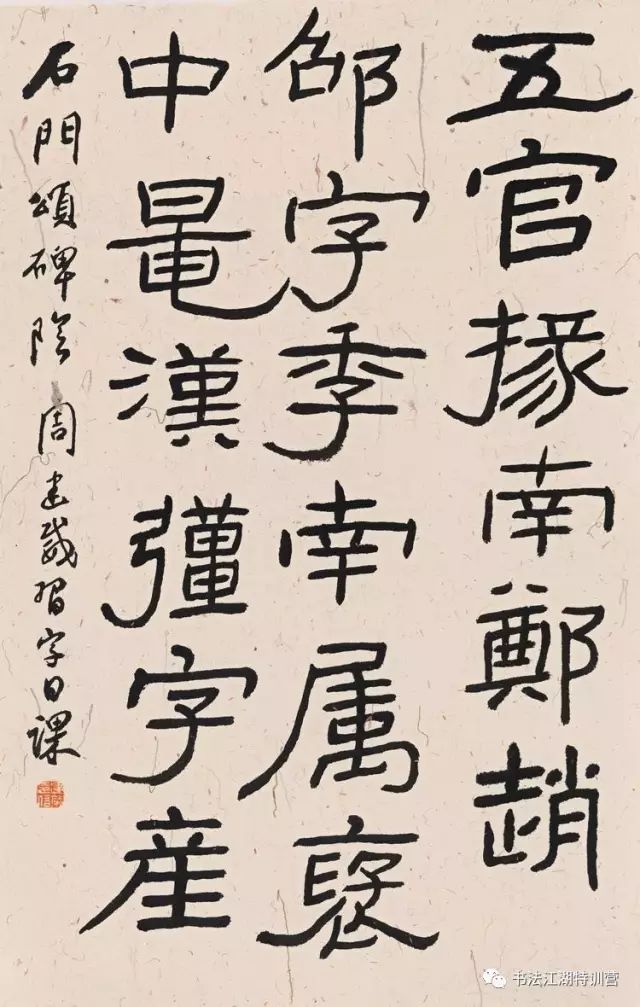 五官掾南鄭趙
邵字季南属褒
中鼂漢彊字産
石門頌碑陰 周建 習字日課
书法江湖特训营